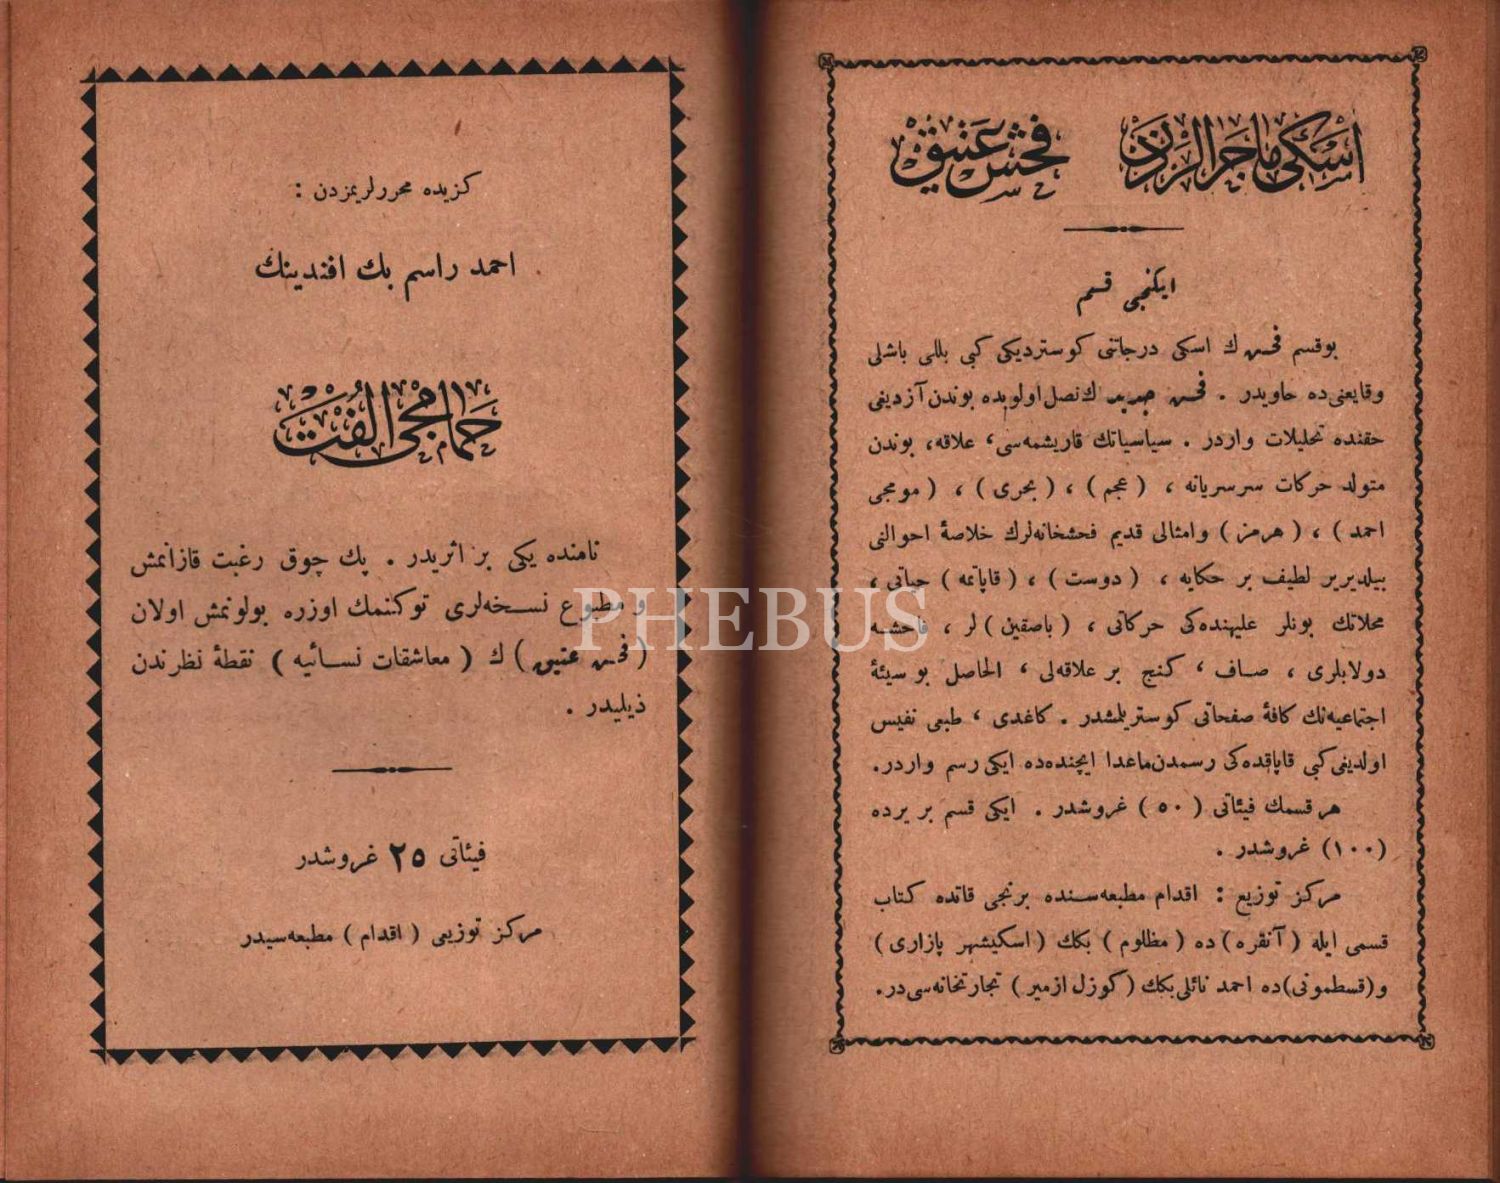 اسكی ماجرالردن فحش عتیق
ایكنجی قسم
بوقسم فحشك اسكی درجاتنی كوستردیكی كبی بللی باشلی
وقایعنی ده حاویدر . فحش جدیدك نصل اولوبده بوندن آزدیغی
حقنده تحلیلات واردر . سیاسیاتك قاریشمه سی، علاقه، بوندن
متولد حركات سرسریانه ، (عجم) ، (بحری) ، (مومجی
احمد) ، (هرمز) وامثالی قدیم فحشخانه لرك خلاصهٔ احوالنی
بیلدیریر لطیف بر حكایه ، (دوست) ، (قاپاتمه) حیاتی ،
محلاتك بونلر علیهنده كی حركاتی ، (باصقین) لر ، فاحشه
دولابلری ، صاف ، كنج بر علاقه لی ، الحاصل بو سیئهٔ
اجتماعیه نك كافهٔ صفحاتی كوستریلمشدر . كاغدی ، طبعی نفیس
اولدیغی كبی قاپاقده كی رسمدن ماعدا ایچنده ده ایكی رسم واردر.
هر قسمك فیئاتی (٥٠) غروشدر . ایكی قسم بر یرده
(١٠٠) غروشدر .
مركز توزیع : اقدام مطبعه سنده برنجی قاتده كتاب
قسمی ایله (آنقره) ده (مظلوم) بكك (اسكیشهر پازاری)
و(قسطمونی) ده احمد نائلی بكك (كوزل ازمیر) تجارتخانه سی در.
كزیده محررلریمزدن :
احمد راسم بك افندینك
حمامجی الفت
نامنده یكی بر اثریدر . پك چوق رغبت قازانمش
و مطبوع نسخه لری توكنمك اوزره بولونمش اولان
(فحش عتیق) ك (معاشقات نسائیه) نقطهٔ نظرندن
ذیلیدر .
فیئاتی ٢٥ غروشدر
مركز توزیعی (اقدام) مطبعه سیدر
PHEBUS